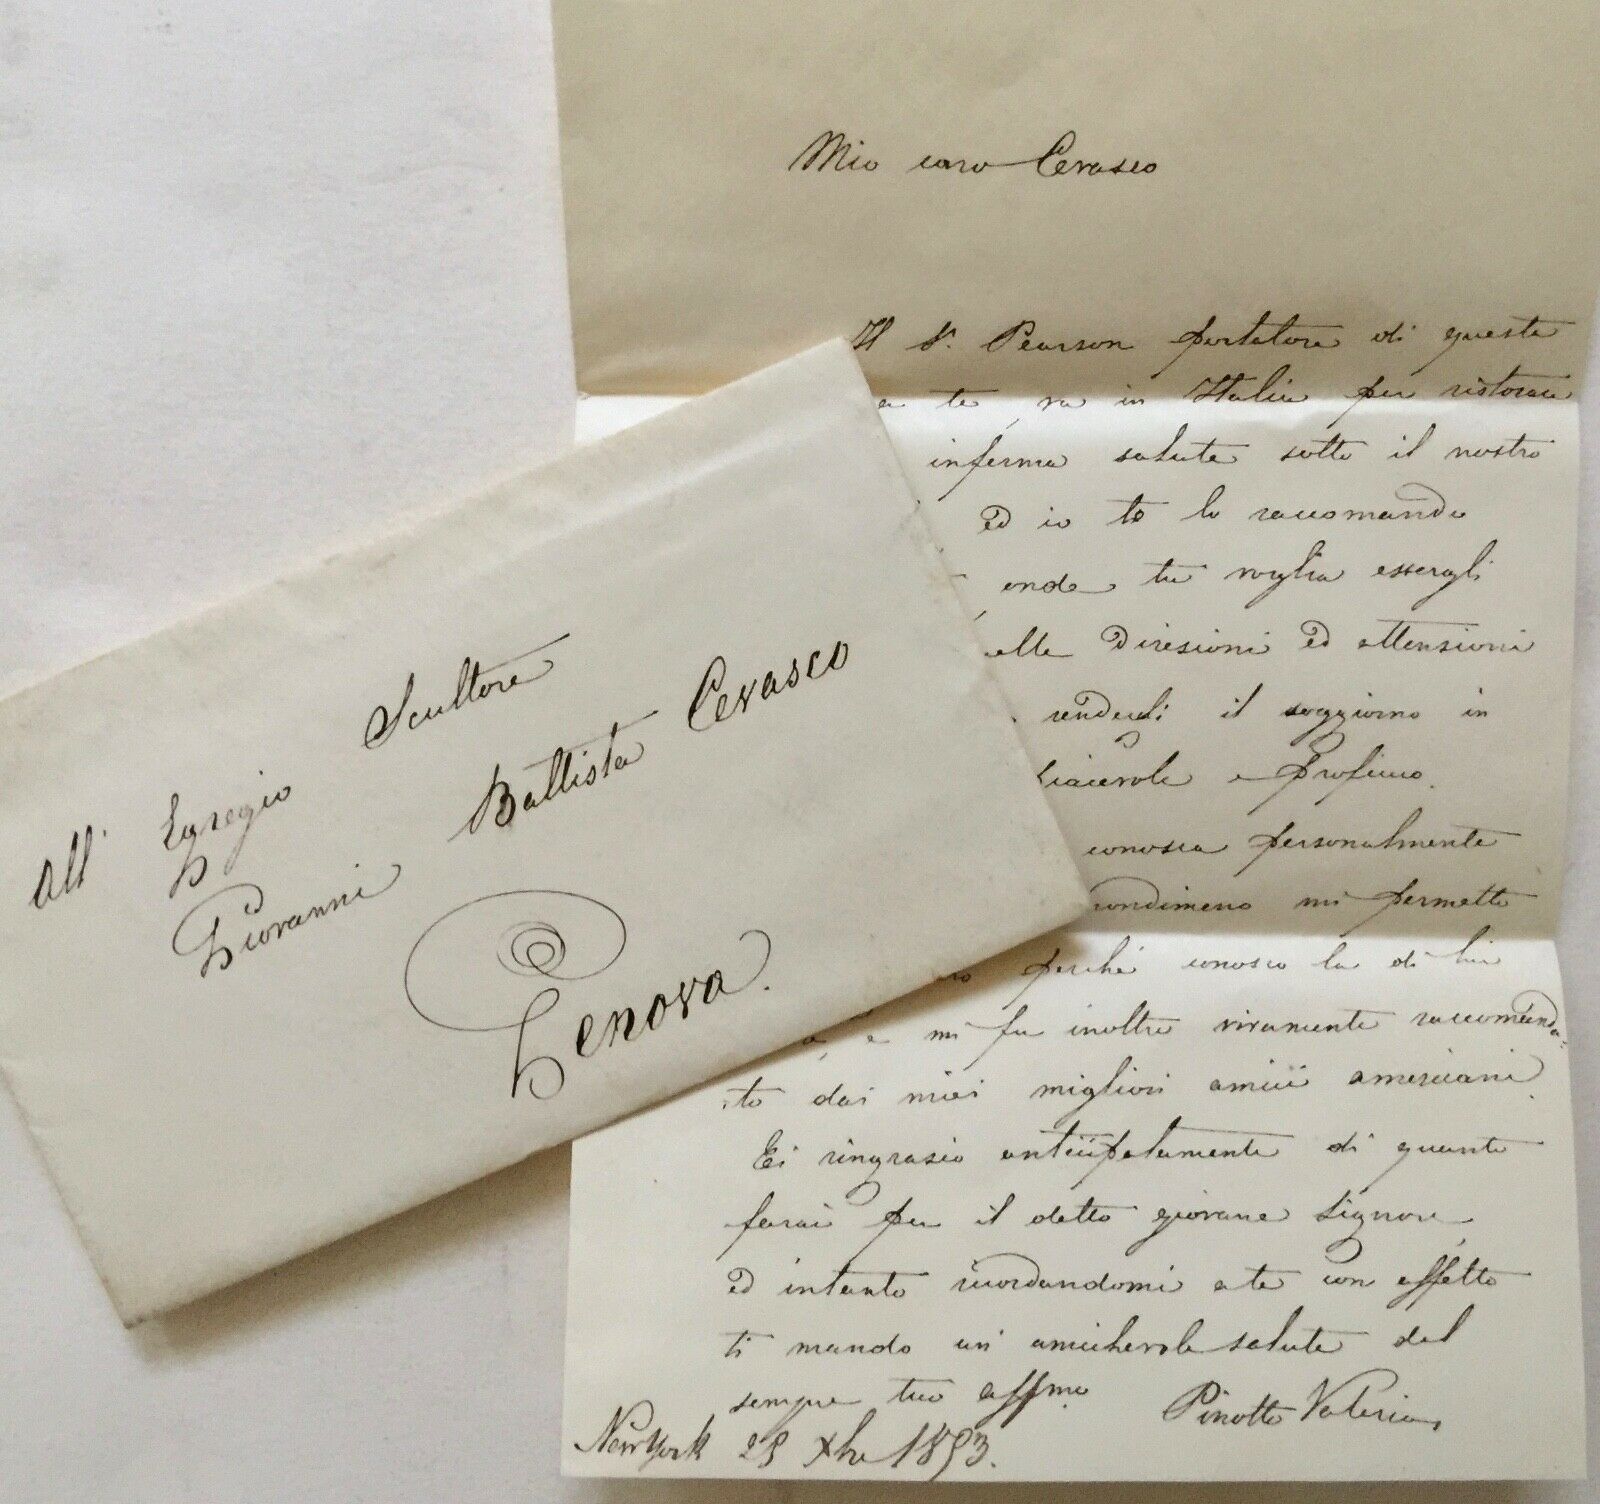 All' Egregio Scultore
Giovanni Battista Cevasco
Genova.
Mio caro Cevasco
Il Sr. Pearson portatore di questa
a te, va in Italia per ristorare
inferma salute sotto il nostro
ed io te lo raccomando
onde tu voglia essergli
elle direzioni ed attenzioni
renderli il soggiorno in
iacevole e proficuo.
conosca personalmente
nondimeno mi permetto
perché conosco la di lui
a, e mi fu inoltre vivamente raccomanda-
to dai miei migliori amici americani.
Ti ringrazio anticipatamente di quanto
farai per il detto giovane signore,
ed intanto ricordandomi a te con affetto
ti mando un' amichevole salute dal
sempre tuo affmo
Pinotto Valerio
New York 28 Xbre 1853.